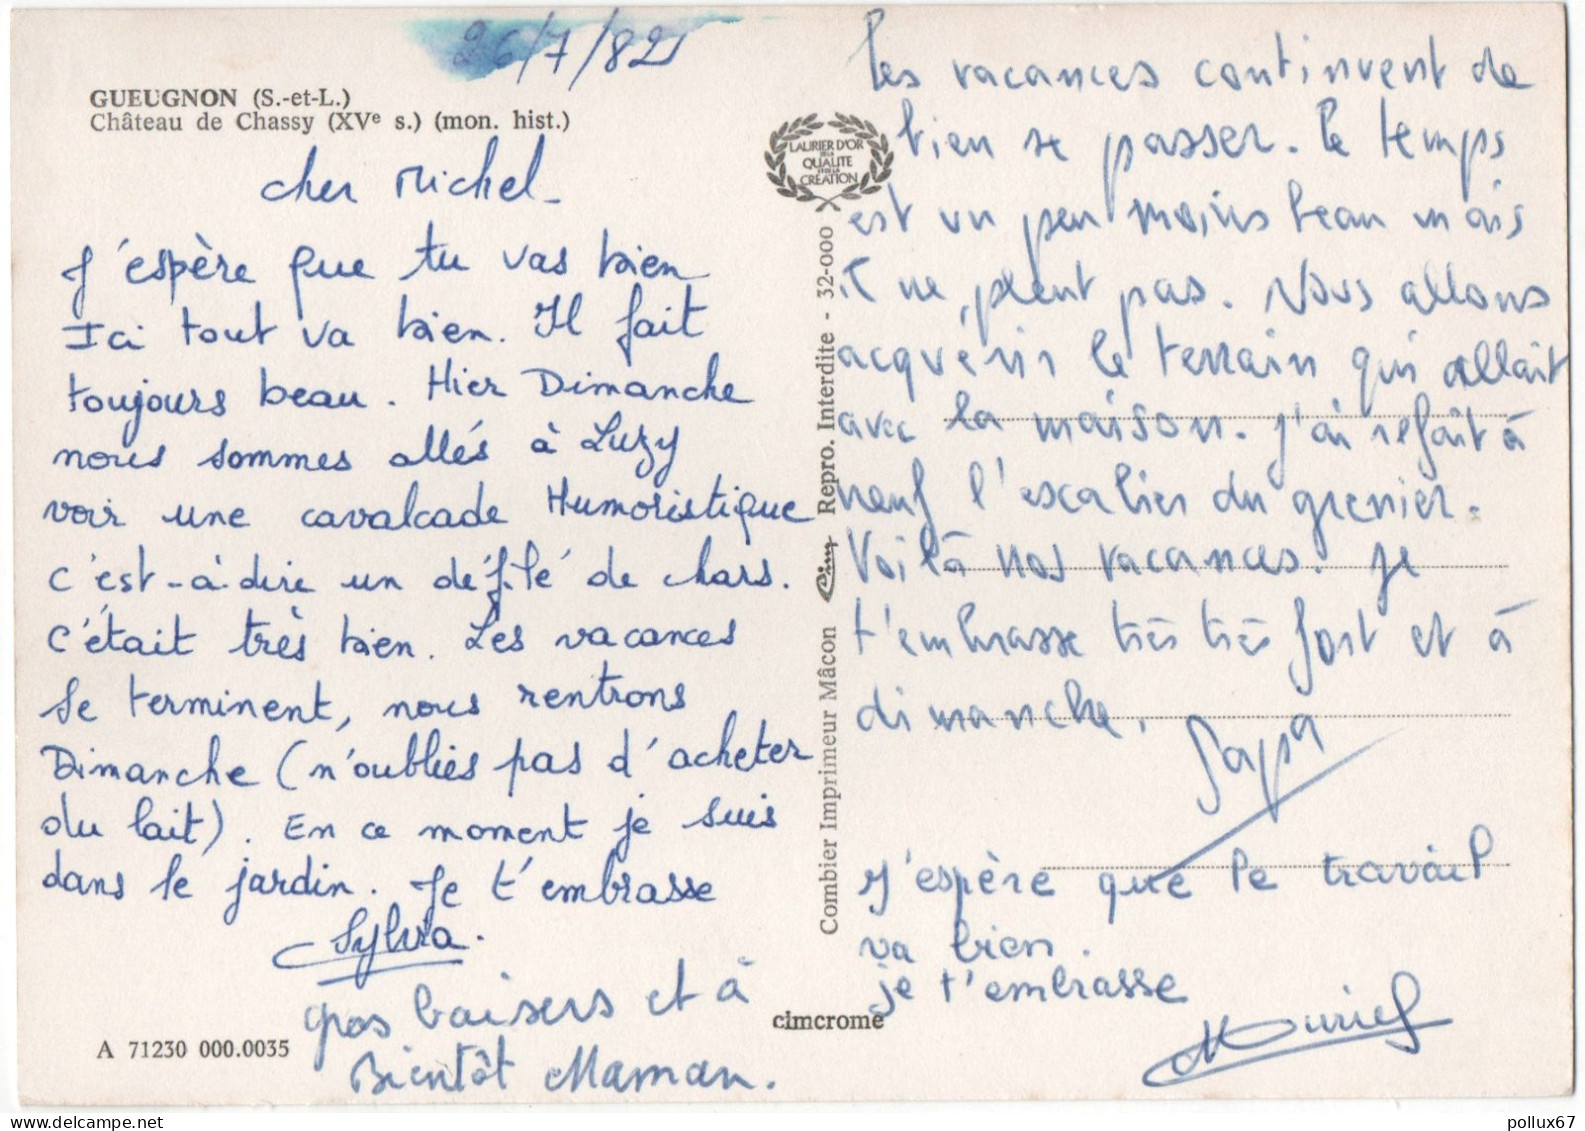 26/7/82
GUEUGNON (S.-et-L.)
Château de Chassy (XVe s.) (mon. hist.)
cher Michel_
J'espère que tu vas bien
Ici tout va bien. Il fait
toujours beau. Hier Dimanche
nous sommes allés à Luzy
voir une cavalcade Humoristique
c'est-à-dire un défilé de chars.
c'était très bien. Les vacances
se terminent, nous rentrons
Dimanche (n'oubliés pas d'acheter
du lait). En ce moment je suis
dans le jardin. Je t'embrasse
Sylvia.
gros baisers et à
Bientôt Maman.
A 71230 000.0035
LAURIER D'OR
DE LA
QUALITE
ET DE LA
CRÉATION
Combier Imprimeur Mâcon Cim Repro. Interdite - 32-000
cimcrome
les vacances continuent de
bien se passer. le temps
est un peu moins beau mais
il ne pleut pas. Nous allons
acquérir le terrain qui allait
avec la maison. j'ai refait à
neuf l'escalier du grenier.
Voilà nos vacances. je
t'embrasse très très fort et à
dimanche.
Papa
J'espère que le travail
va bien.
je t'embrasse
Muriel
pollux67